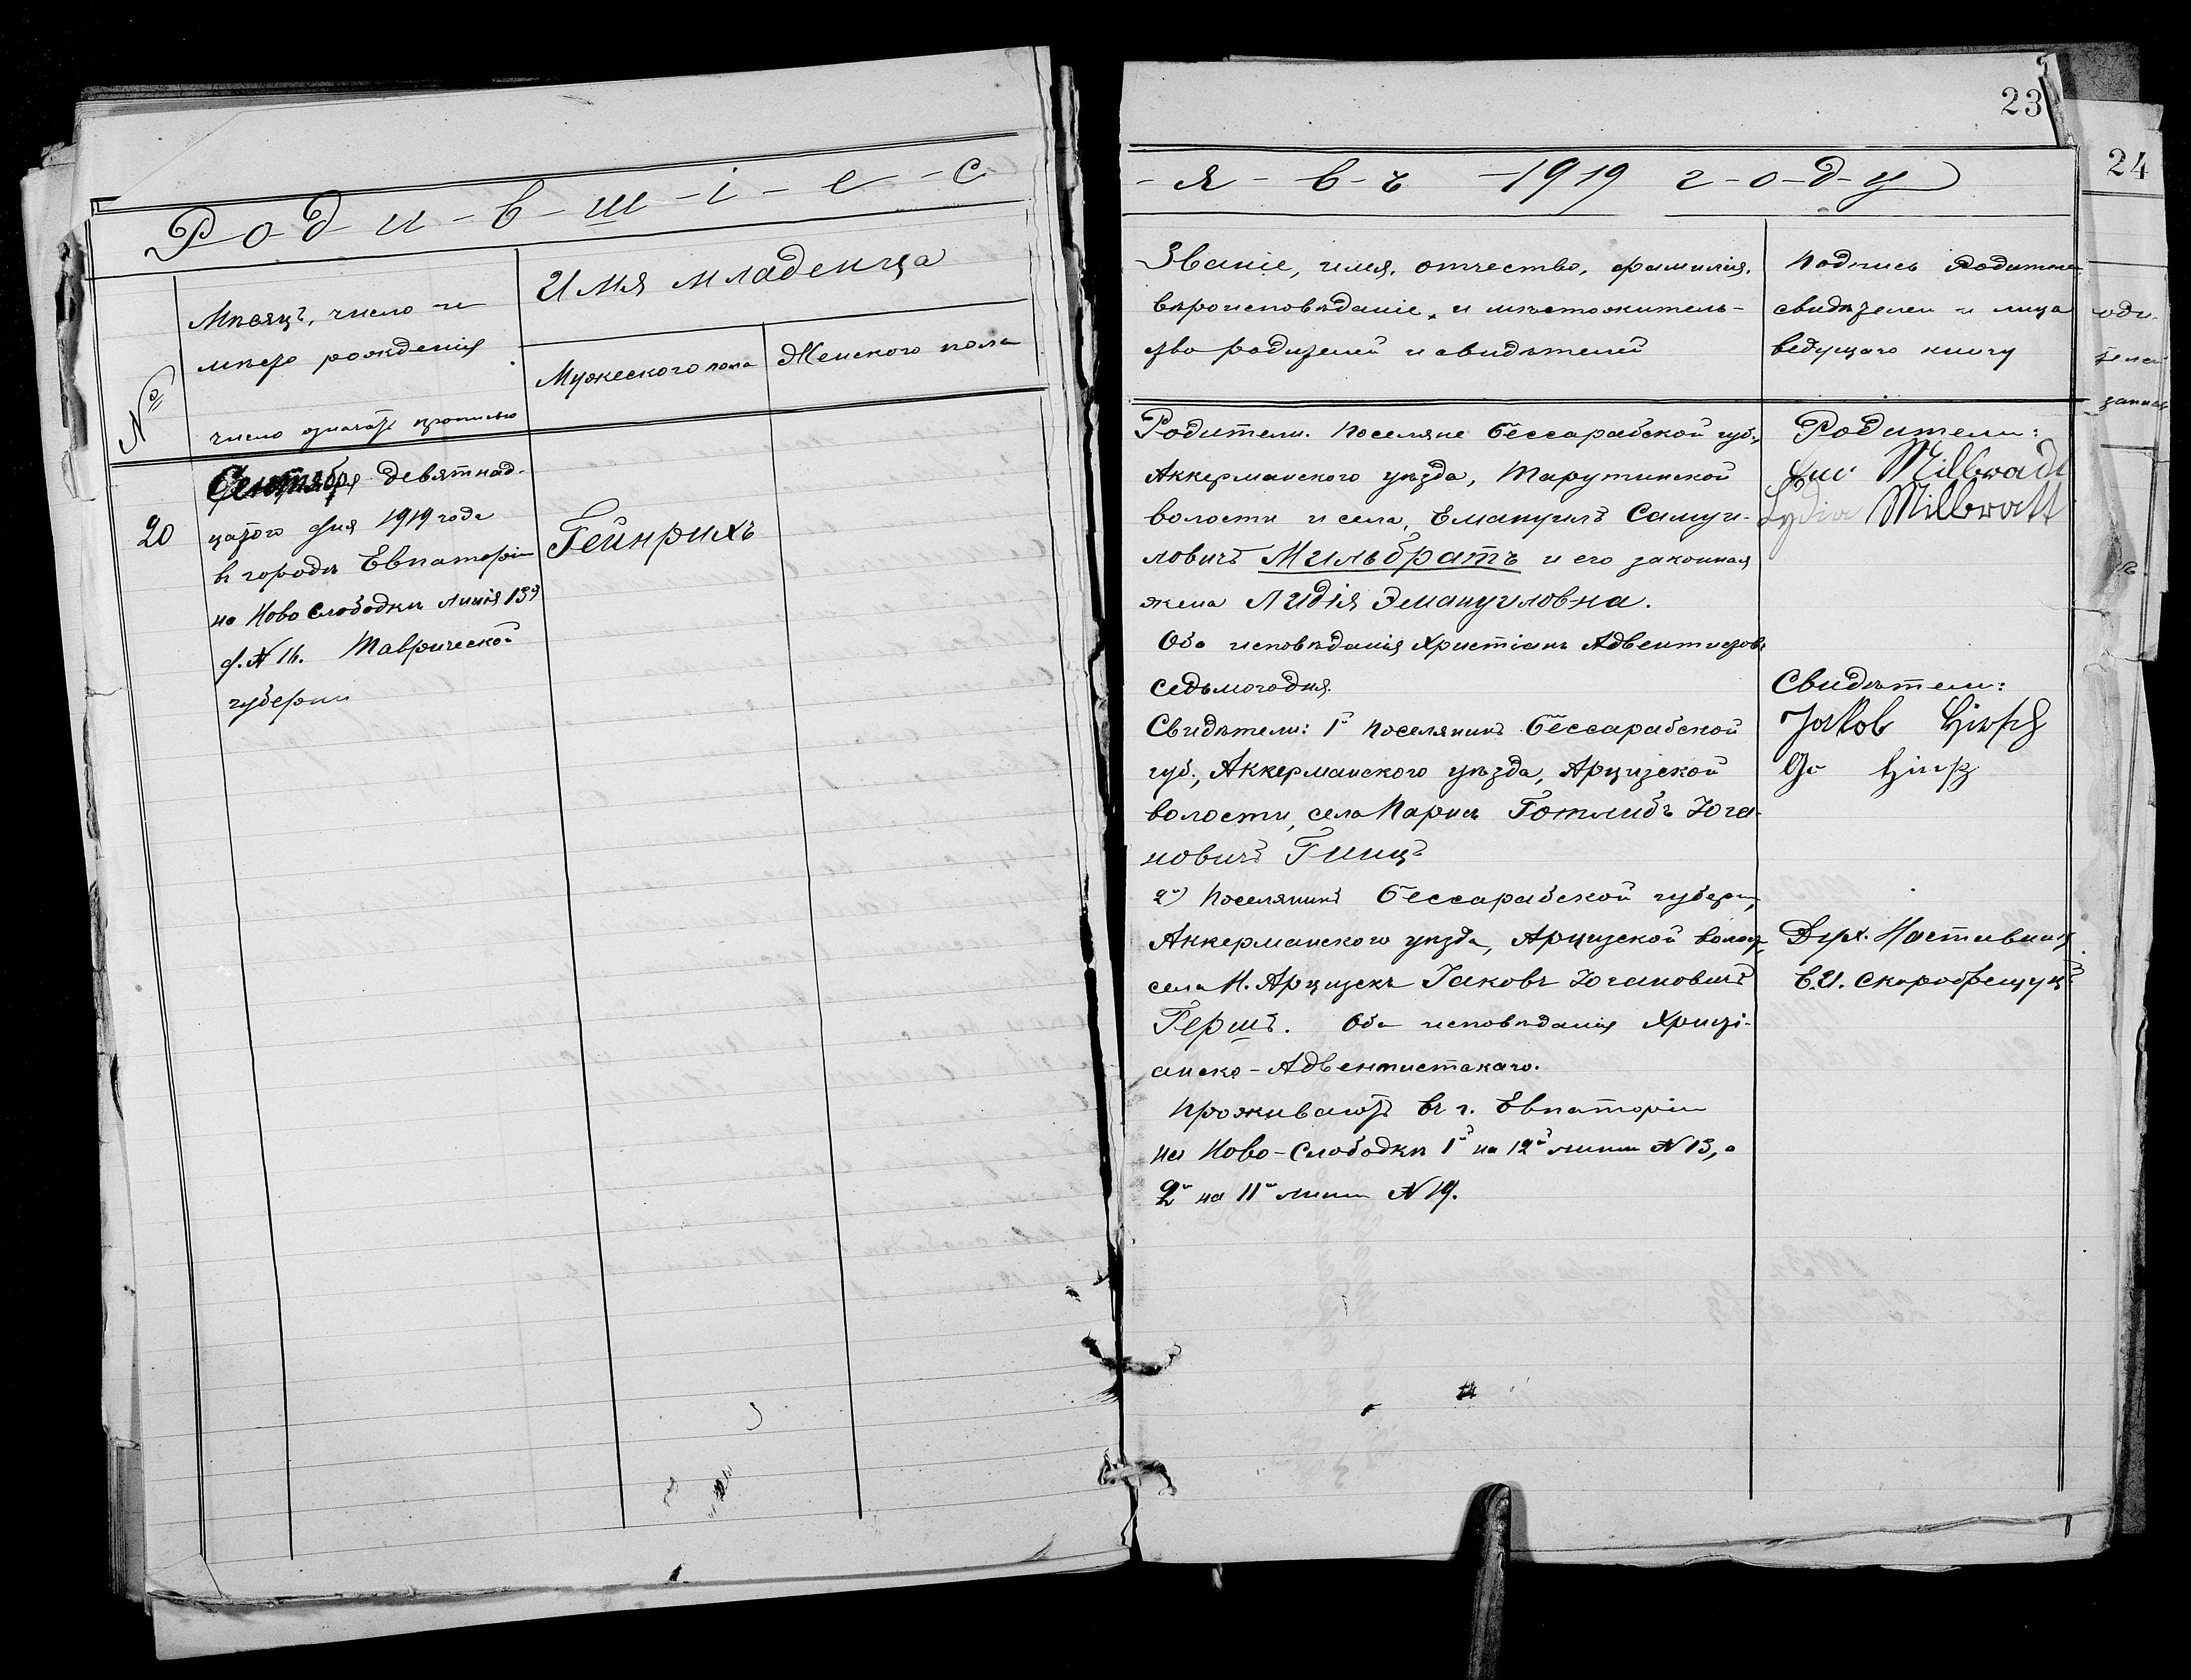 23
24
Р-о-д-и-в-ш-і-е-с
-я-в-ъ -1919 г-о-д-у
№
Мѣсяцъ, число и
мѣсто рожденія
число означать прописью
Имя младенца
Мужескаго пола
Женскаго пола
Званіе, имя, отчество, фамилія,
вѣроисповѣданіе, и мѣстожитель-
ство родителей и свидѣтелей
Подпись Родителей
свидѣтелей и лица
ведущаго книгу
20
Сентября девятнад-
цатого дня 1919 года
въ городѣ Евпаторіи
на Ново Слободкѣ линія 13я
д. № 16. Таврической
губерніи
Гейнрихъ
Родители. Поселяне Бессарабской губ.,
Аккерманского уѣзда, Тарутинской
волости и села, Емануилъ Самуи-
ловичъ Мильбратъ и его законная
жена Лидія Эмануиловна.
Оба исповѣданія Христіанъ Адвентистовъ
седьмого дня.
Свидѣтели: 1й Поселянинъ Бессарабской
губ., Аккерманского уѣзда, Арцизской
волости, села Парижъ Готлибъ Юга-
новичъ Гинцъ
2й) Поселянинъ Бессарабской губерн,
Аккерманского уѣзда, Арцизской волост,
села Н. Арцизскъ Іаковъ Югановичъ
Гершъ. Оба исповѣданія Христі-
анско-Адвентистскаго.
Проживаютъ въ г. Евпаторіи
на Ново-Слободкѣ 1й на 12й линіи № 13, а
2й на 11й линіи № 19.
Родители:
Milbradt
Lydia Milbratt
Свидѣтели:
Jakob Hirsch
Hinz
Дух. Наставникъ
Е.И. Скоробрещукъ